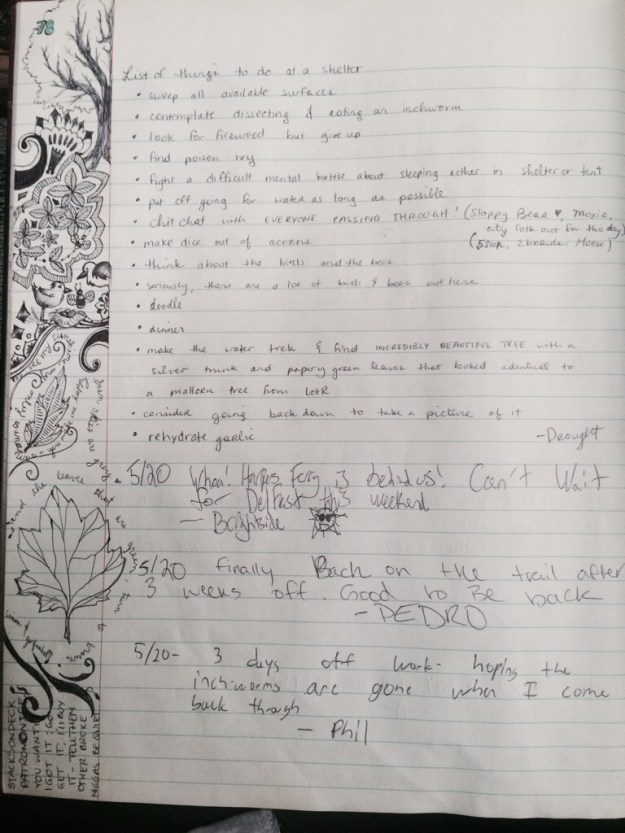 78
List of things to do at a shelter
• sweep all available surfaces
• contemplate dissecting & eating an inchworm
• look for firewood but give up
• find poison ivy
• fight a difficult mental battle about sleeping either in shelter or tent
• put off going for water as long as possible
• chit chat with EVERYONE PASSING THROUGH! (Sloppy Bear ♥, Moxie,
city folk out for the day)
• make dice out of acorns
(5 Star, 2 beards, Moose)
• think about the birds and the bees
• seriously, there are a lot of birds & bees out here
• doodle
• dinner
• make the water trek & find INCREDIBLY BEAUTIFUL TREE with a
silver trunk and papery green leaves that looked identical to
a mallorn tree from LotR
• consider going back down to take a picture of it
• rehydrate garlic
- Drought
5/20 Whoa! Harpers Ferry is behind us! Can't Wait
for DelFest this weekend.
- Brightside
5/20 Finally Back on the trail after
3 weeks off. Good to Be back
- PEDRO
5/20- 3 days off work- hoping the
inch-worms are gone when I come
back though
- Phil
when skies are grey
and the leaves that are green turn to
STACKS ON DECK
PATRON ON ICE
YOU WANT IT
I GOT IT: GO
GET IT, I'LL BUY
IT - TELL THEM
OTHER BROKE
NIGGAS BE QUIET